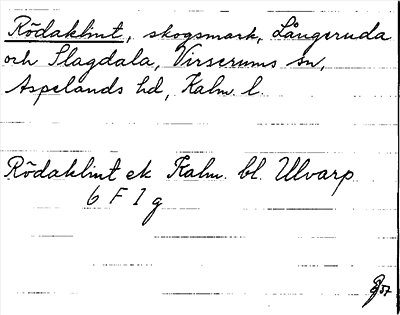 Rödaklint, skogsmark, Långeruda
och Slagdala, Virserums sn,
Aspelands hd, Kalm. l.
Rödaklint ek Kalm. bl. Ulvarp
6 F 1 g